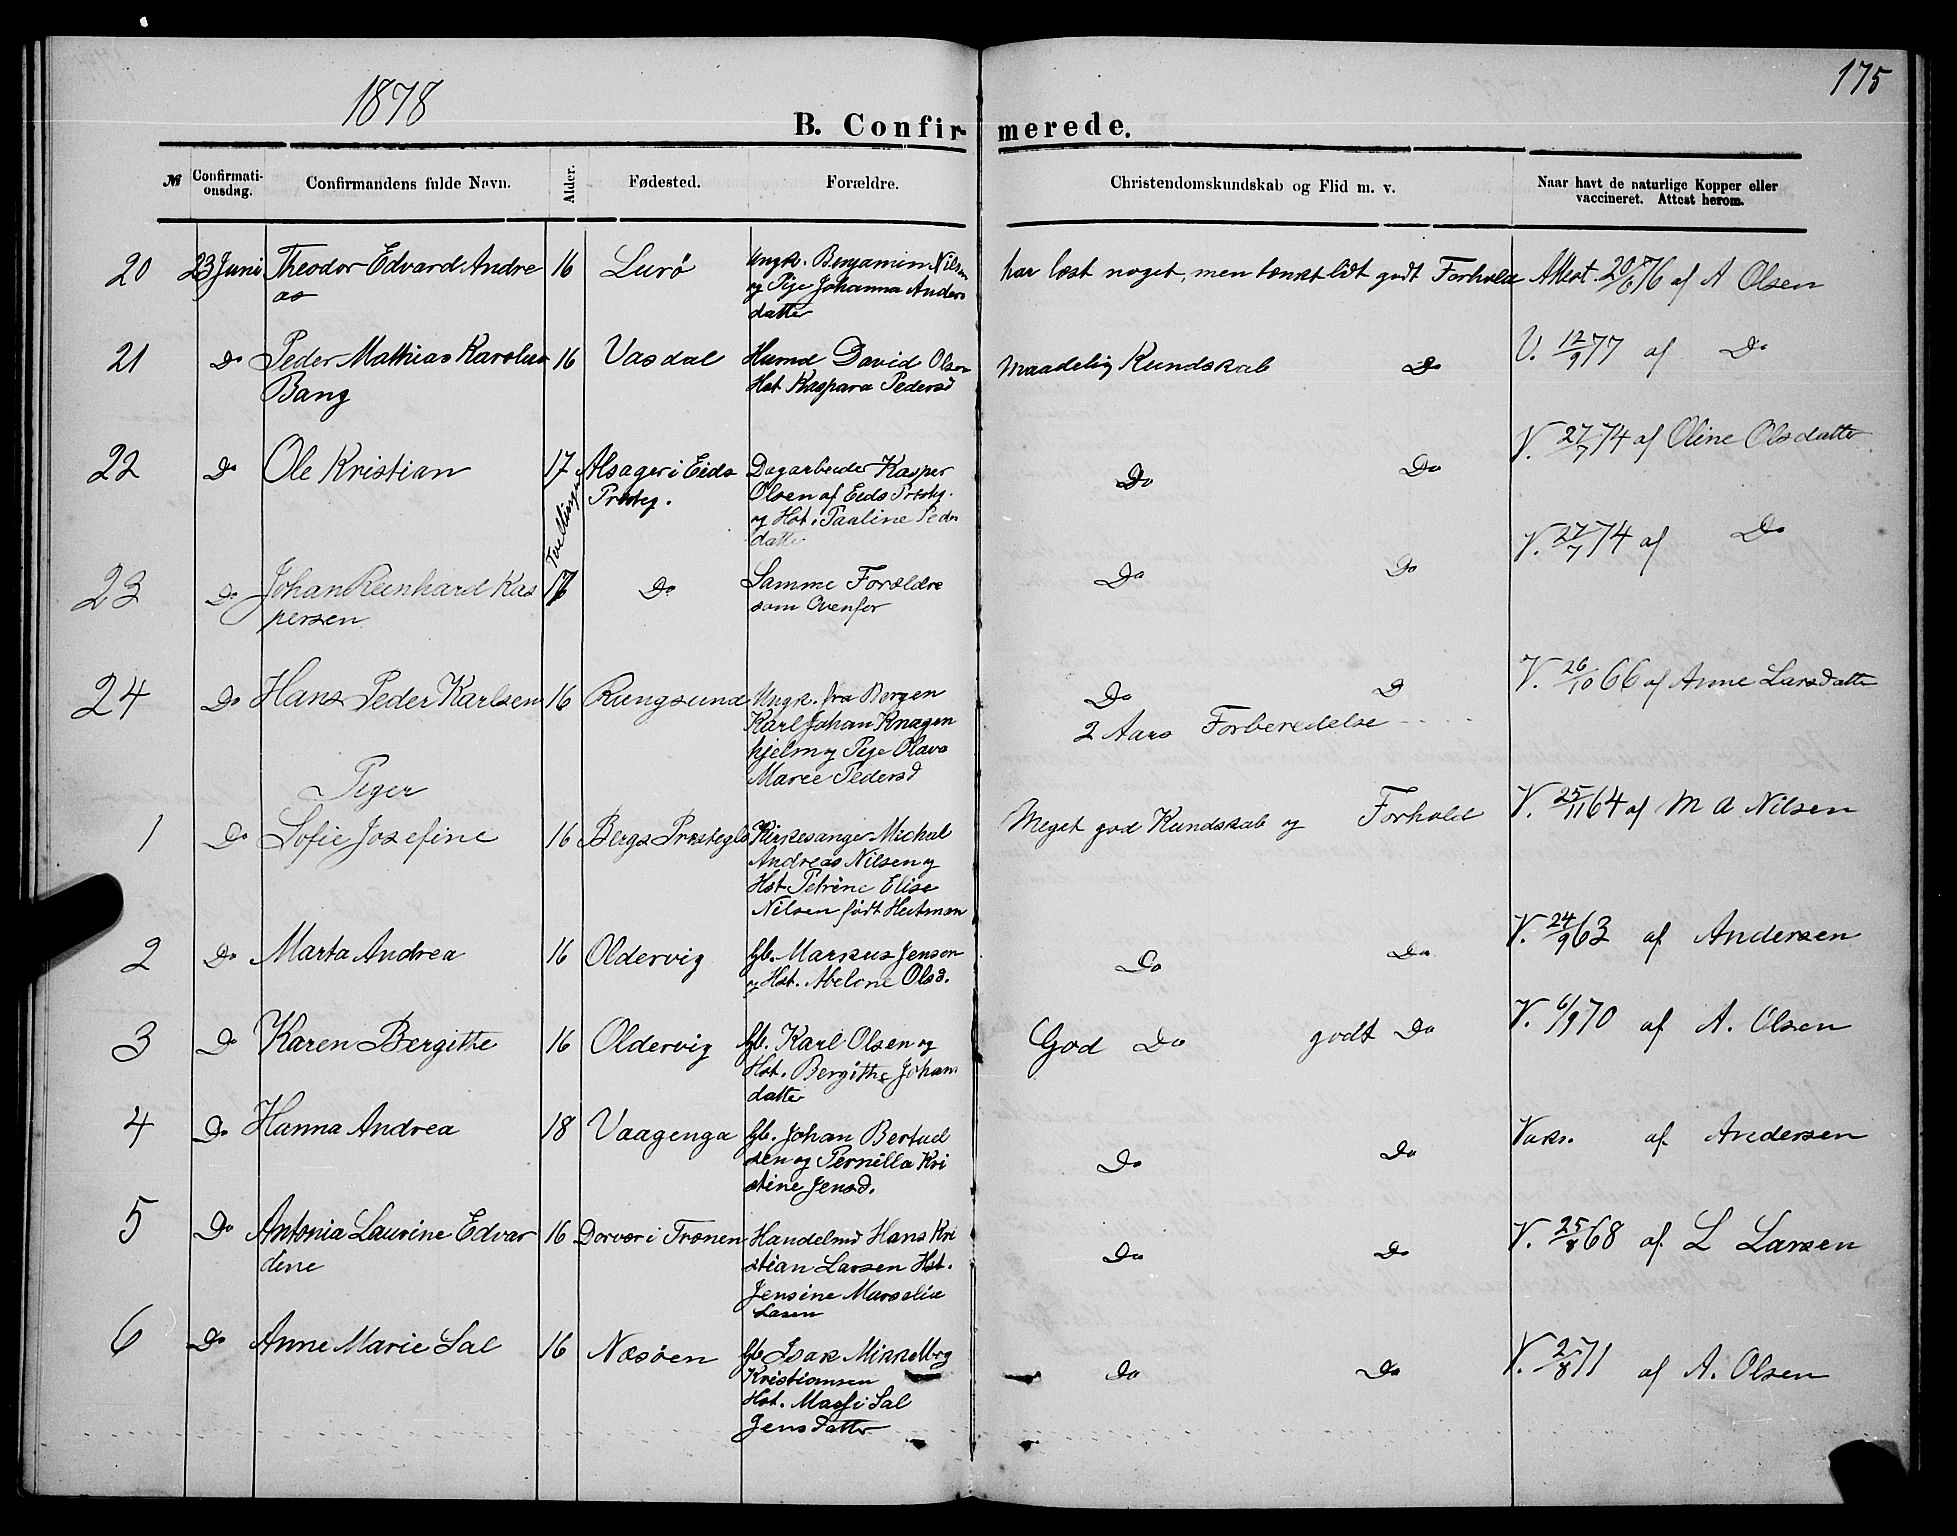 175
1878
B. Confirmerede.
№ Confirmationsdag. Confirmandens fulde Navn. Alder. Fødested. Forældre. Christendomskundskab og Flid m. v. Naar havt de naturlige Kopper eller vaccineret. Attest herom.
20 23 Juni Theodor Edvard Andre 16 Lurö Ungk. Benjamin Nilsen har læst noget, men tænkt lidt godt Forhold Attest 20/6 76 af A Olsen
as og Pige Johanna Anders
datter
21 Do Peder Mathias Karolus 16 Vasdal Husmd David Olsen maadelig Kundskab Do V. 12/9 77 af Do
Bang Hst Kaspara Pedersd
22 Do Ole Kristian 17 Alsager i Eids Dagarbeider Kasper Do Do V. 27/7 74 af Oline Olsdatter
Præsteg. Olsen af Eids Præsteg.
og Hst. Pauline Peder
datter
Tvillinger
23 Do Johan Reinhard Kas 17 Do Samme Forældre Do Do V. 27/7 74 af Do
persen som Ovenfor
24 Do Hans Peder Karlsen 16 Rungsund Ungk. fra Bergen Do D V. 26/10 66 af Anne Larsdatter
Karl Johan Knagen 2 Aars Forberedelse
hjelm og Pige Olava
Marie Pedersd
Piger
1 Do Sofie Josefine 16 Bergs Præstegld Kirkesanger Michal Meget god Kundskab og Forhold V. 25/11 64 af M A Nilsen
Andreas Nilsen og
Hst Petrine Elise
Nilsen født Heitman
2 Do Marta Andrea 16 Oldervig Gb. Markus Jensen Do Do V. 24/9 63 af Andersen
og Hst. Abelone Olsd.
3 Do Karen Bergitte 16 Oldervig Gb. Karl Olsen og God Do godt Do V. 6/9 70 af A. Olsen
Hst. Bergithe Johans
datter
4 Do Hanna Andrea 18 Vaagenga Gb. Johan Bertud Do Do Vaks. af Andersen
sen og Pernilla Kri
stine Jensd.
5 Do Antonia Laurine Edvar 16 Dorvær i Trænen Handelsmd Hans Kri Do Do V. 25/8 68 af L Larsen
dine stian Larsen Hst.
Jensine Marselie
Lasen
6 Do Anne Marie Sal 16 Næsöen Gb Isak Mikkelborg Do Do V. 25/8 71 af A. Olsen
Kristiansen
Hst. Massi Sal
Jensdatter